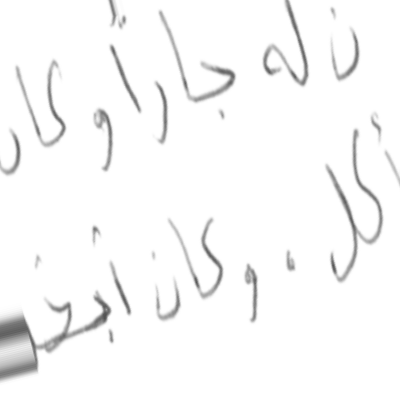 ن له جاراً وكان
أكل . وكان أبخـ